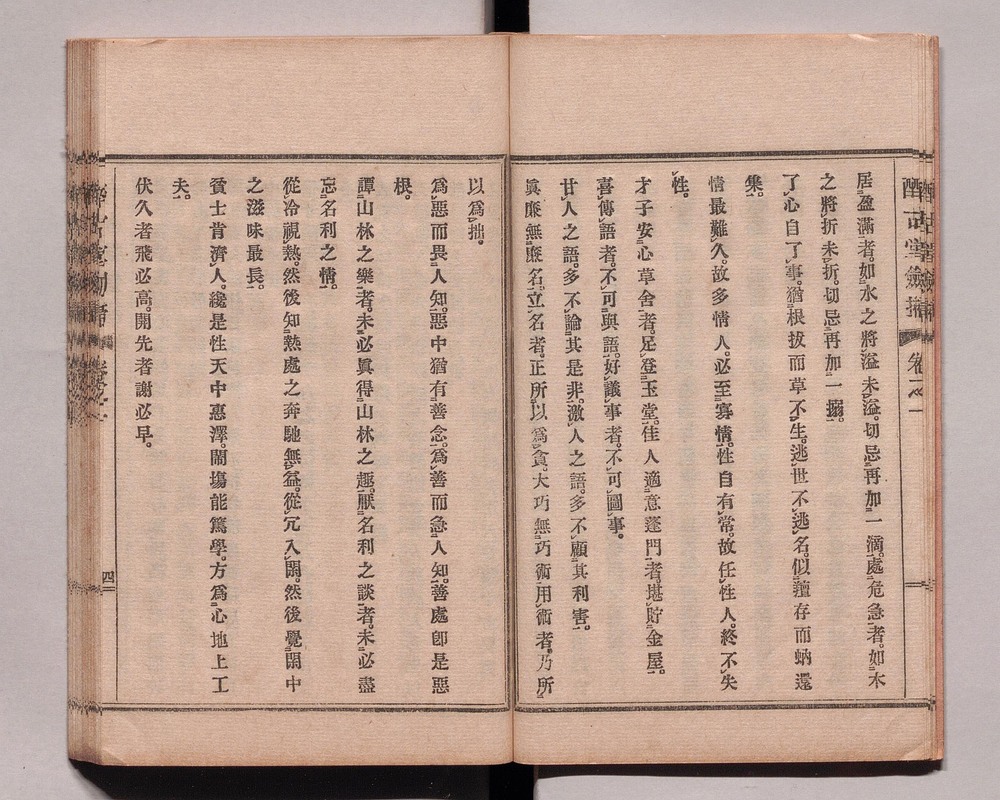 醉古堂劍掃 卷之一
居盈滿者。如水之將溢未溢。切忌再加一滴。處危急者。如木
之將折未折。切忌再加一搦。
了心自了事。猶根拔而草不生。逃世不逃名。似羶存而蚋還
集。
情最難久。故多情人。必至寡情。性自有常。故任性人。終不失
性。
才子安心草舍者。足登玉堂。佳人適意蓬門者。堪貯金屋。
喜傳語者。不可與語。好議事者。不可圖事。
甘人之語。多不論其是非。激人之語。多不顧其利害。
眞廉無廉名。立名者。正所以爲貪。大巧無巧術。用術者。乃所
以爲拙。
爲惡而畏人知。惡中猶有善念。爲善而急人知。善處卽是惡
根。
譚山林之樂者。未必眞得山林之趣。厭名利之談者。未必盡
忘名利之情。
從冷視熱。然後知熱處之奔馳無益。從冗入閑。然後覺閑中
之滋味最長。
貧士肯濟人。纔是性天中惠澤。鬧場能篤學。方爲心地上工
夫。
伏久者飛必高。開先者謝必早。
四